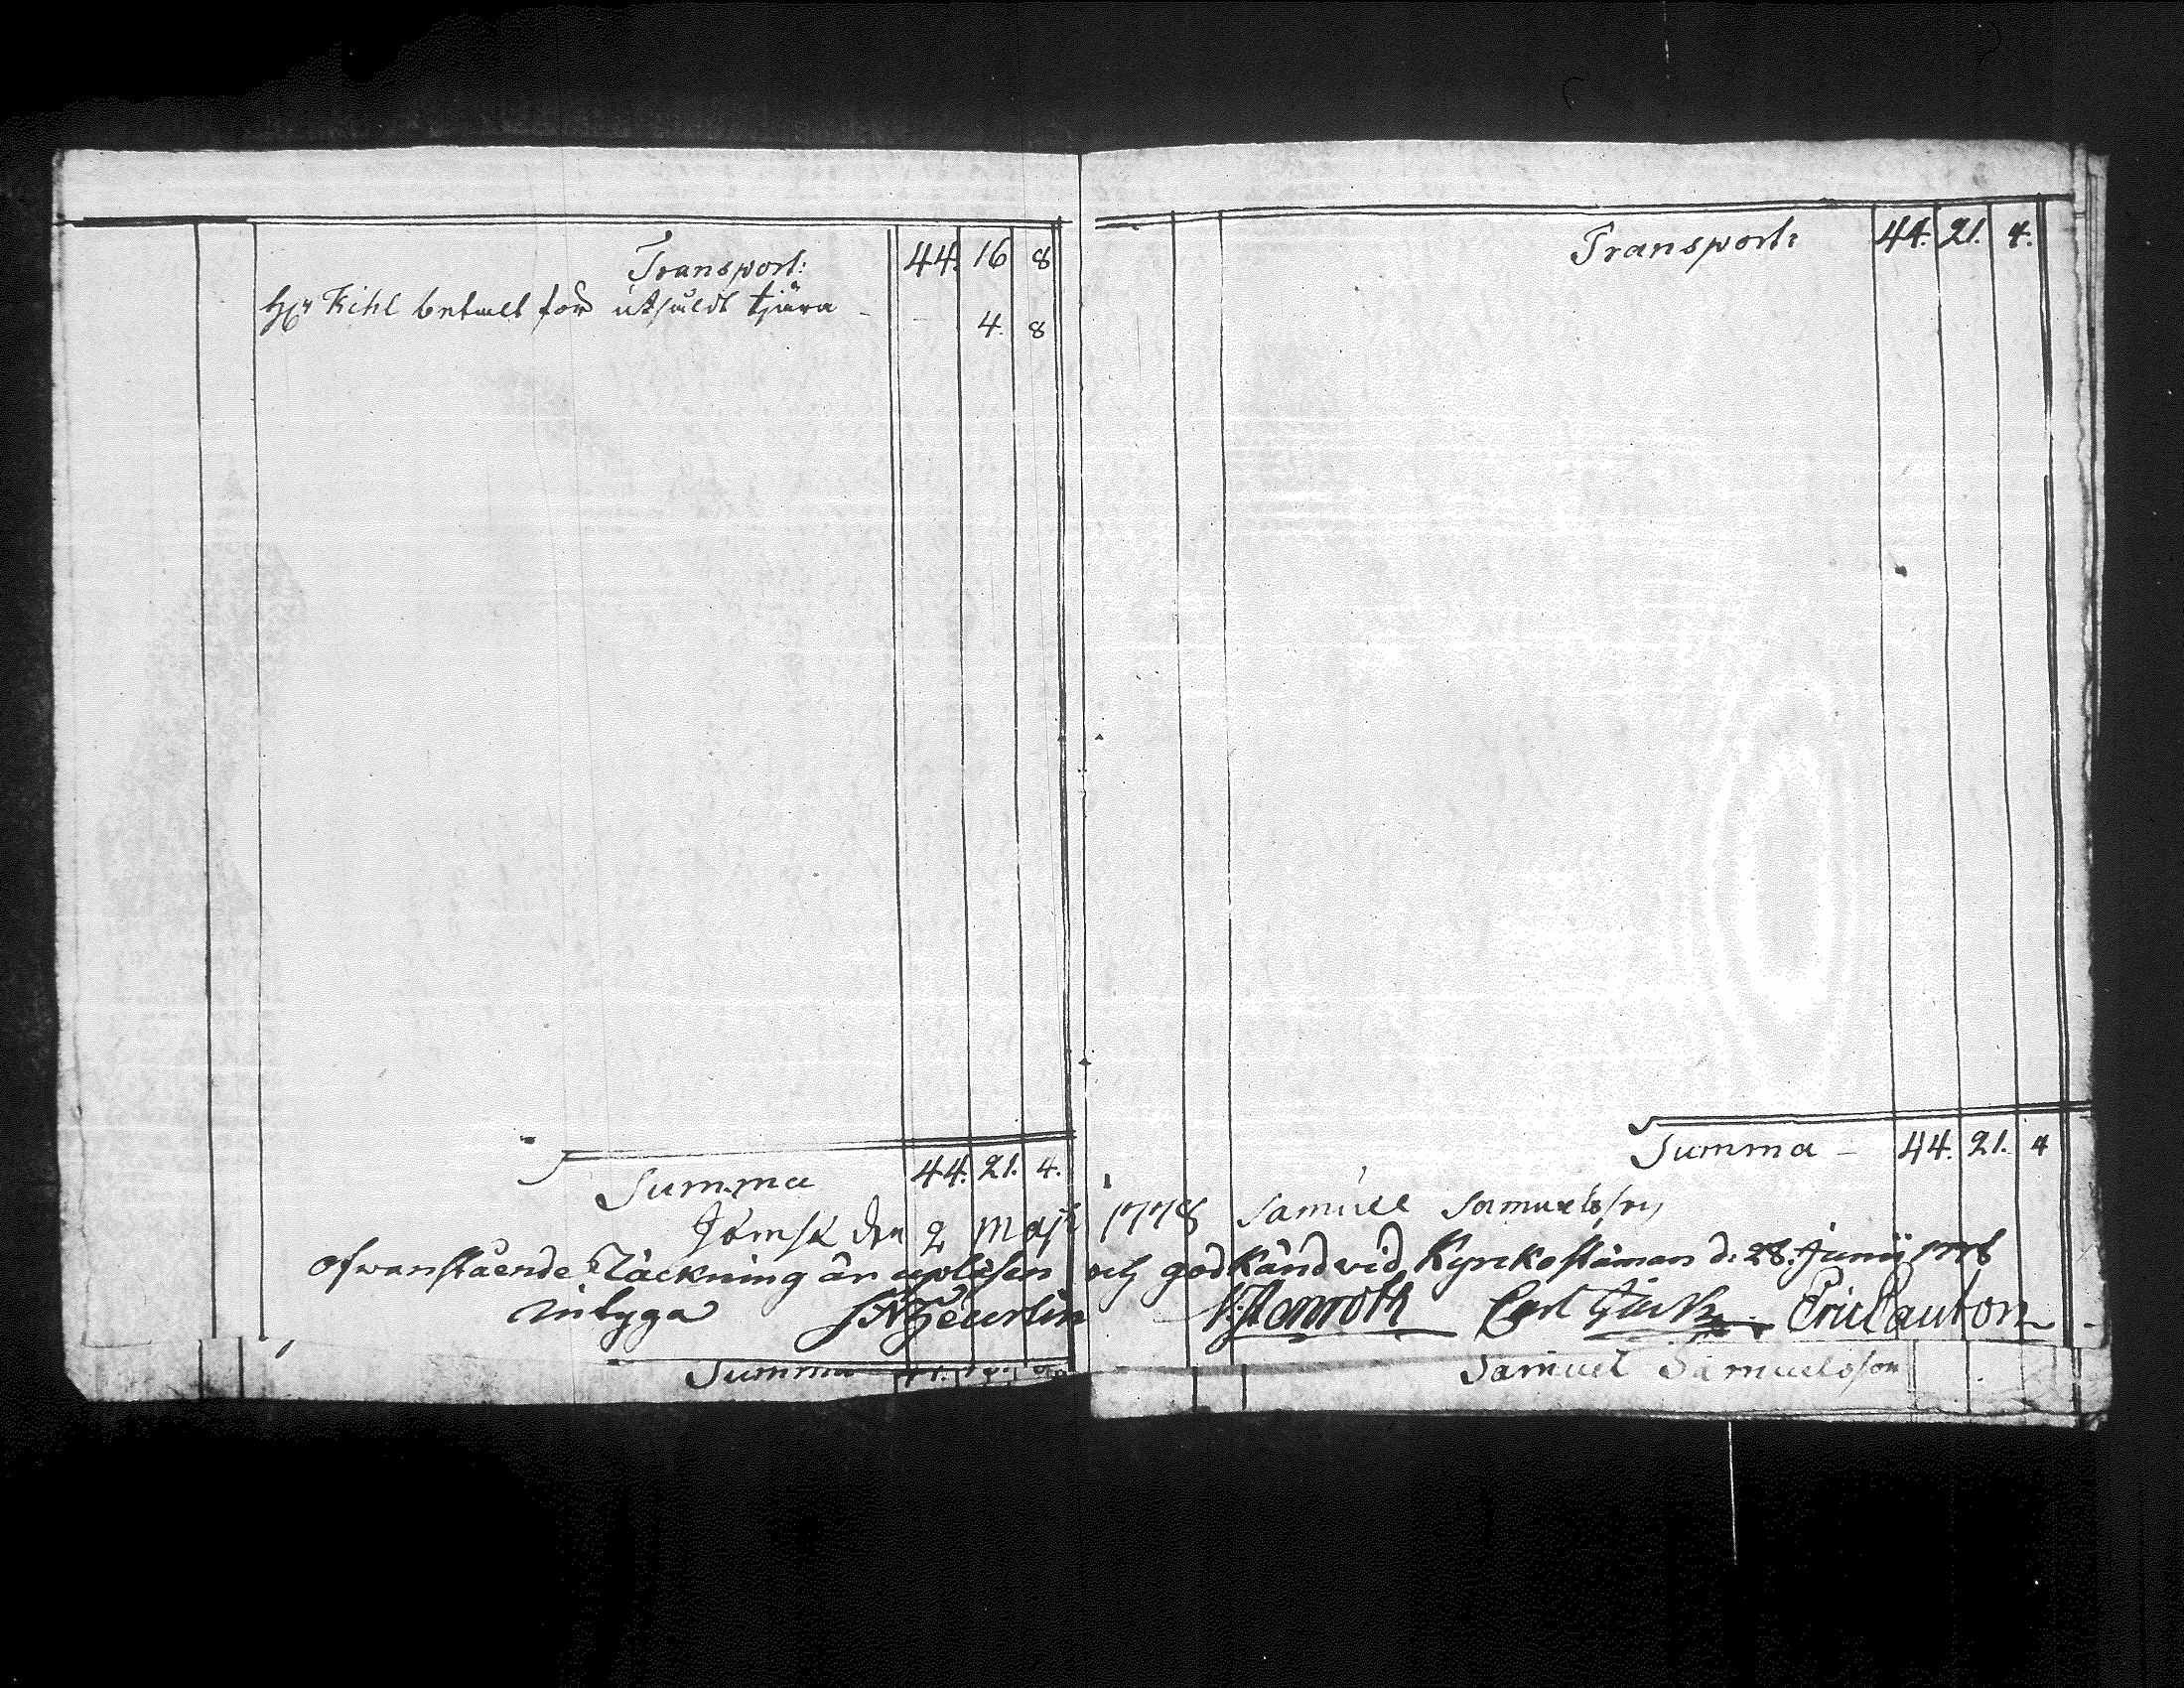 Transport: 44. 16 8
Hr Kihl betalt för utsåldt tjära - - 4. 8
Summa 44. 21. 4.
Transport: 44. 21. 4.
Summa - 44. 21. 4
den 2 Maji 1778 Samuel Samuelsson
Ofwanstående Räckning är uplesen och godkänd vid Kyrkostäman d. 28. Junii 1778
intyga Carl Eric
Summa
Samuel Samuelsson